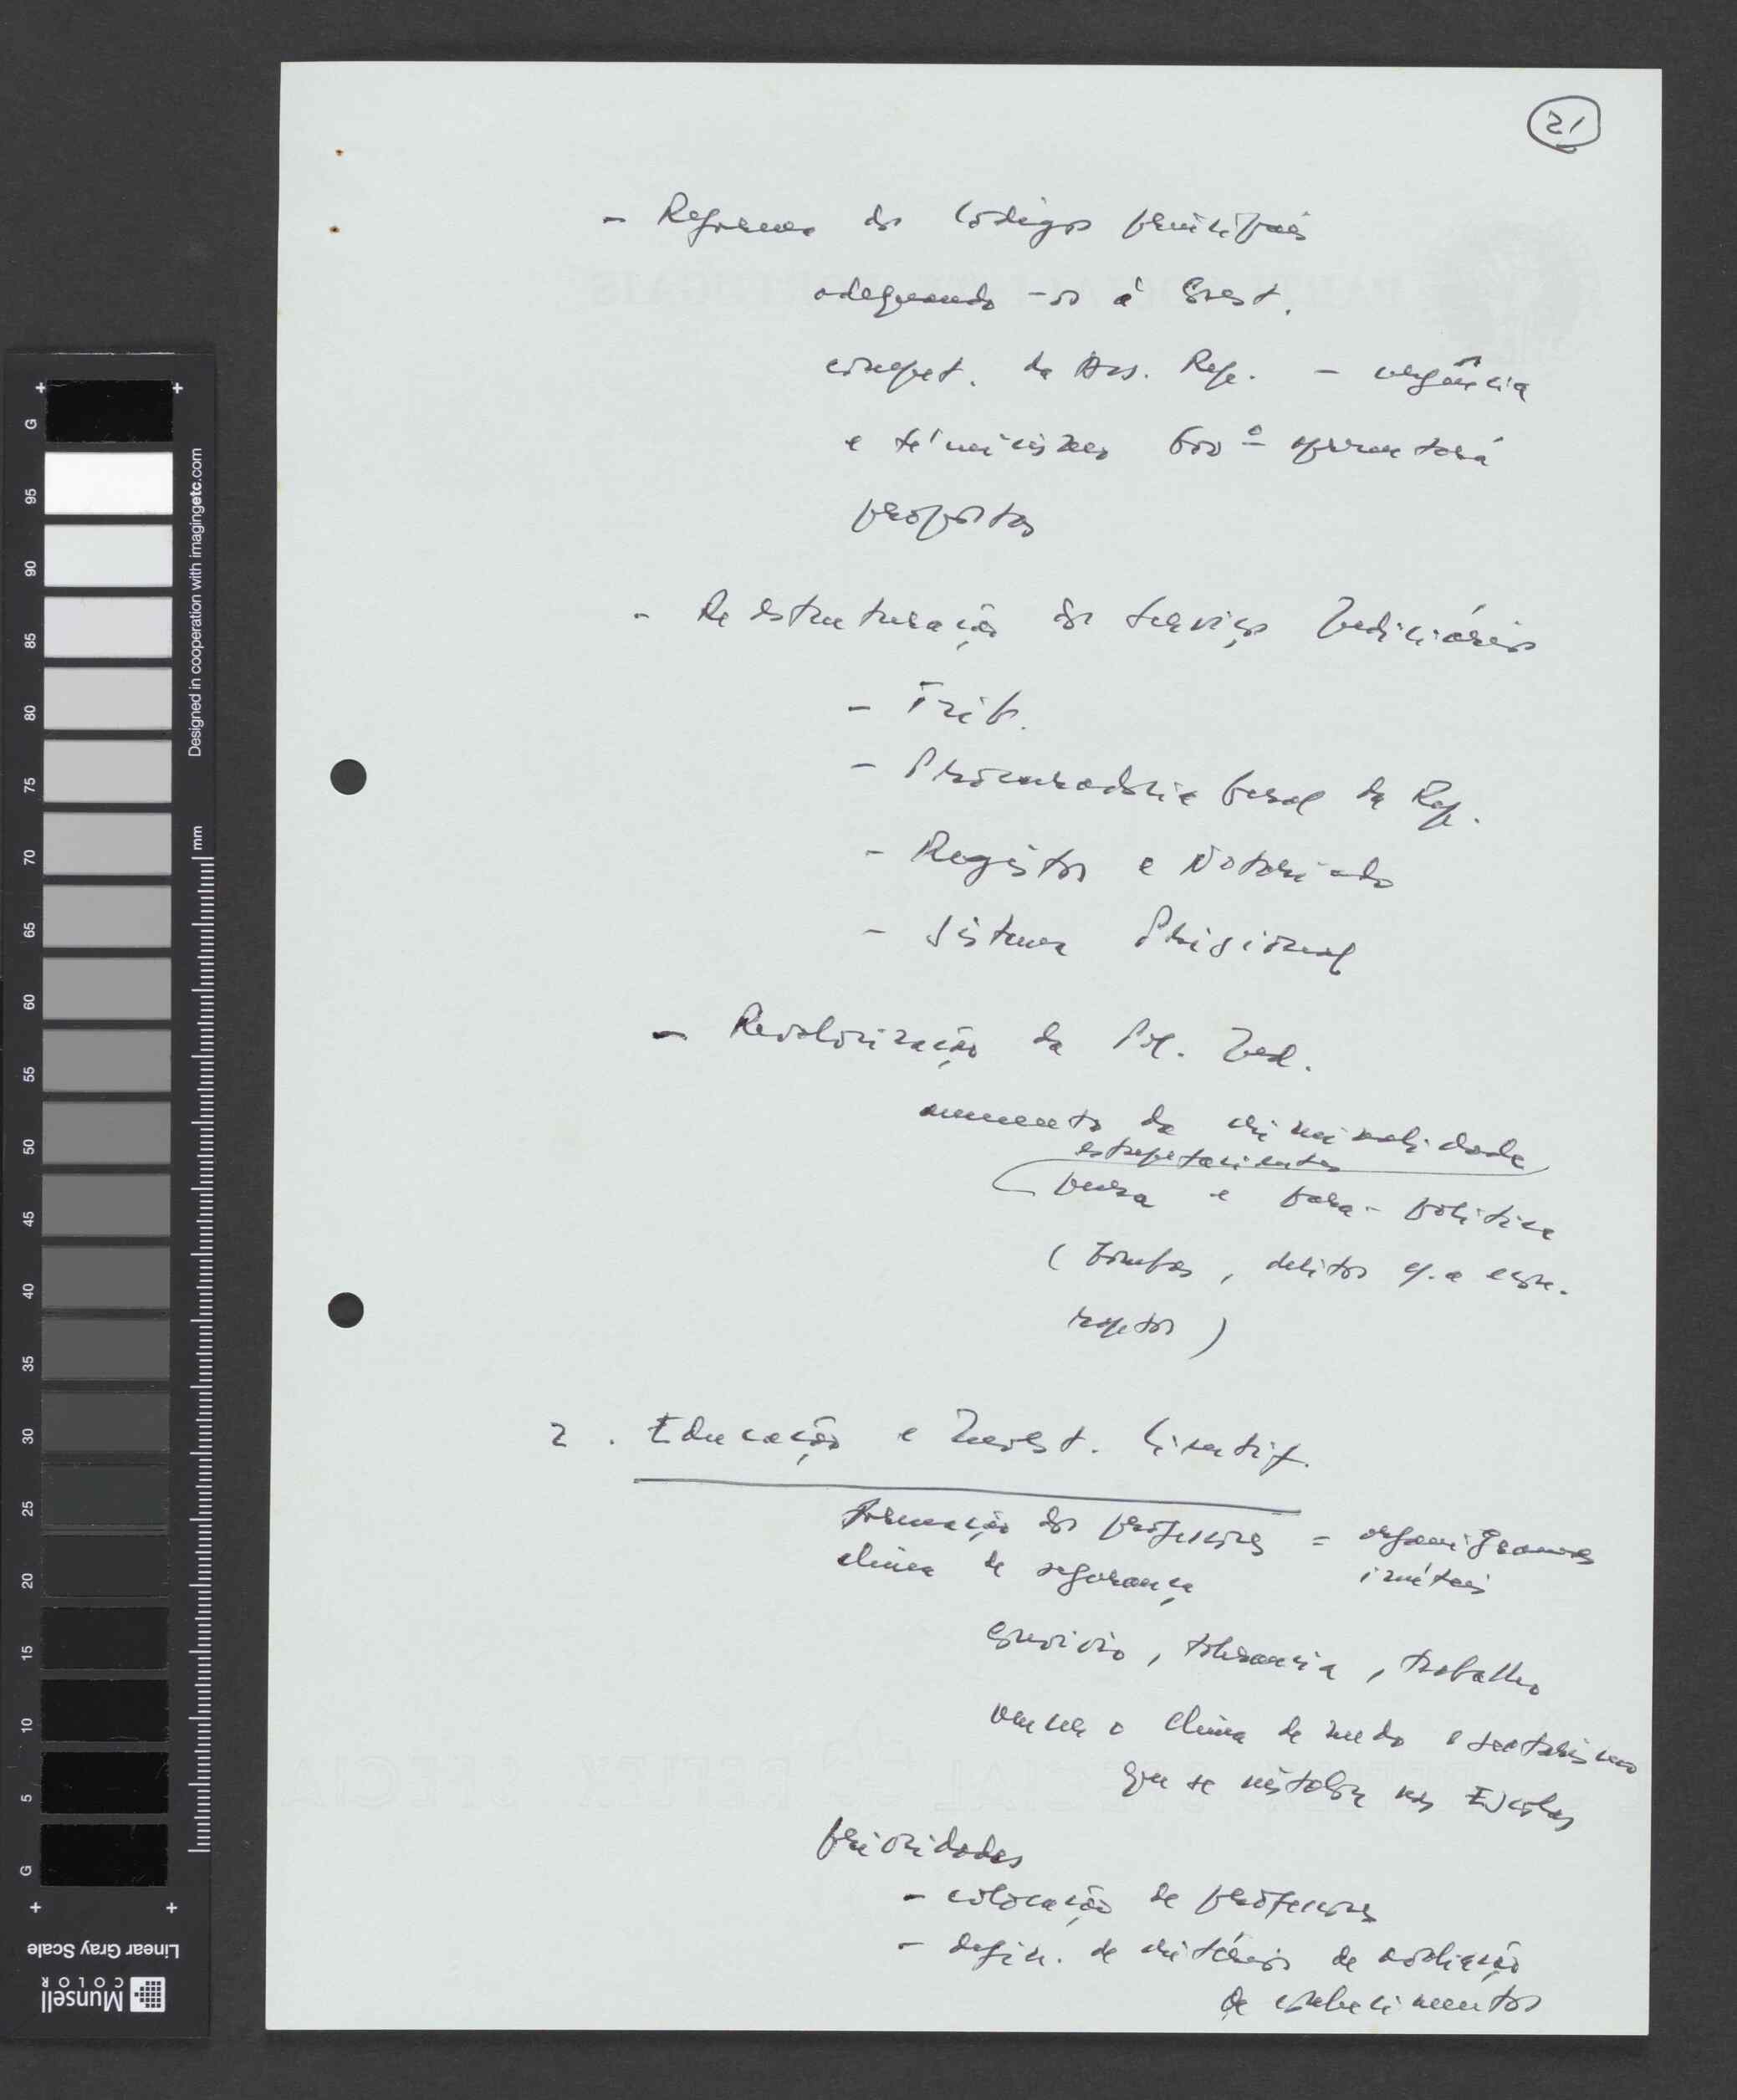 21
- Reforma dos Códigos principais
adequando-os à Const.
compet. da Ass. Rep. - urgência
e tecnicismo Gov.º apresentará
propostas
- Reestruturação dos serviços Judiciários
- Trib.
- Procuradoria Geral da Rep.
- Registos e Notariado
- Sistema Prisional
- Revalorização da Pol. Jud.
aumento da criminalidade
pura e para-política
(bombas, delitos
raptos)
2. Educação e Invest. Cientif.
Formação dos professores = organigramas
clima de segurança
convívio, tolerancia, trabalho
vencer o clima de medo e sectarismo
que se instalou nas Escolas
prioridades
- colocação de professores
- defin. de critérios de avaliação
de conhecimentos
G 95 90 85 80 75 70 65 60 55 50 45 40 35 30 25 20 15 10 5 G
Designed in cooperation with imagingetc.com
mm
Linear Gray Scale
Munsell
COLOR